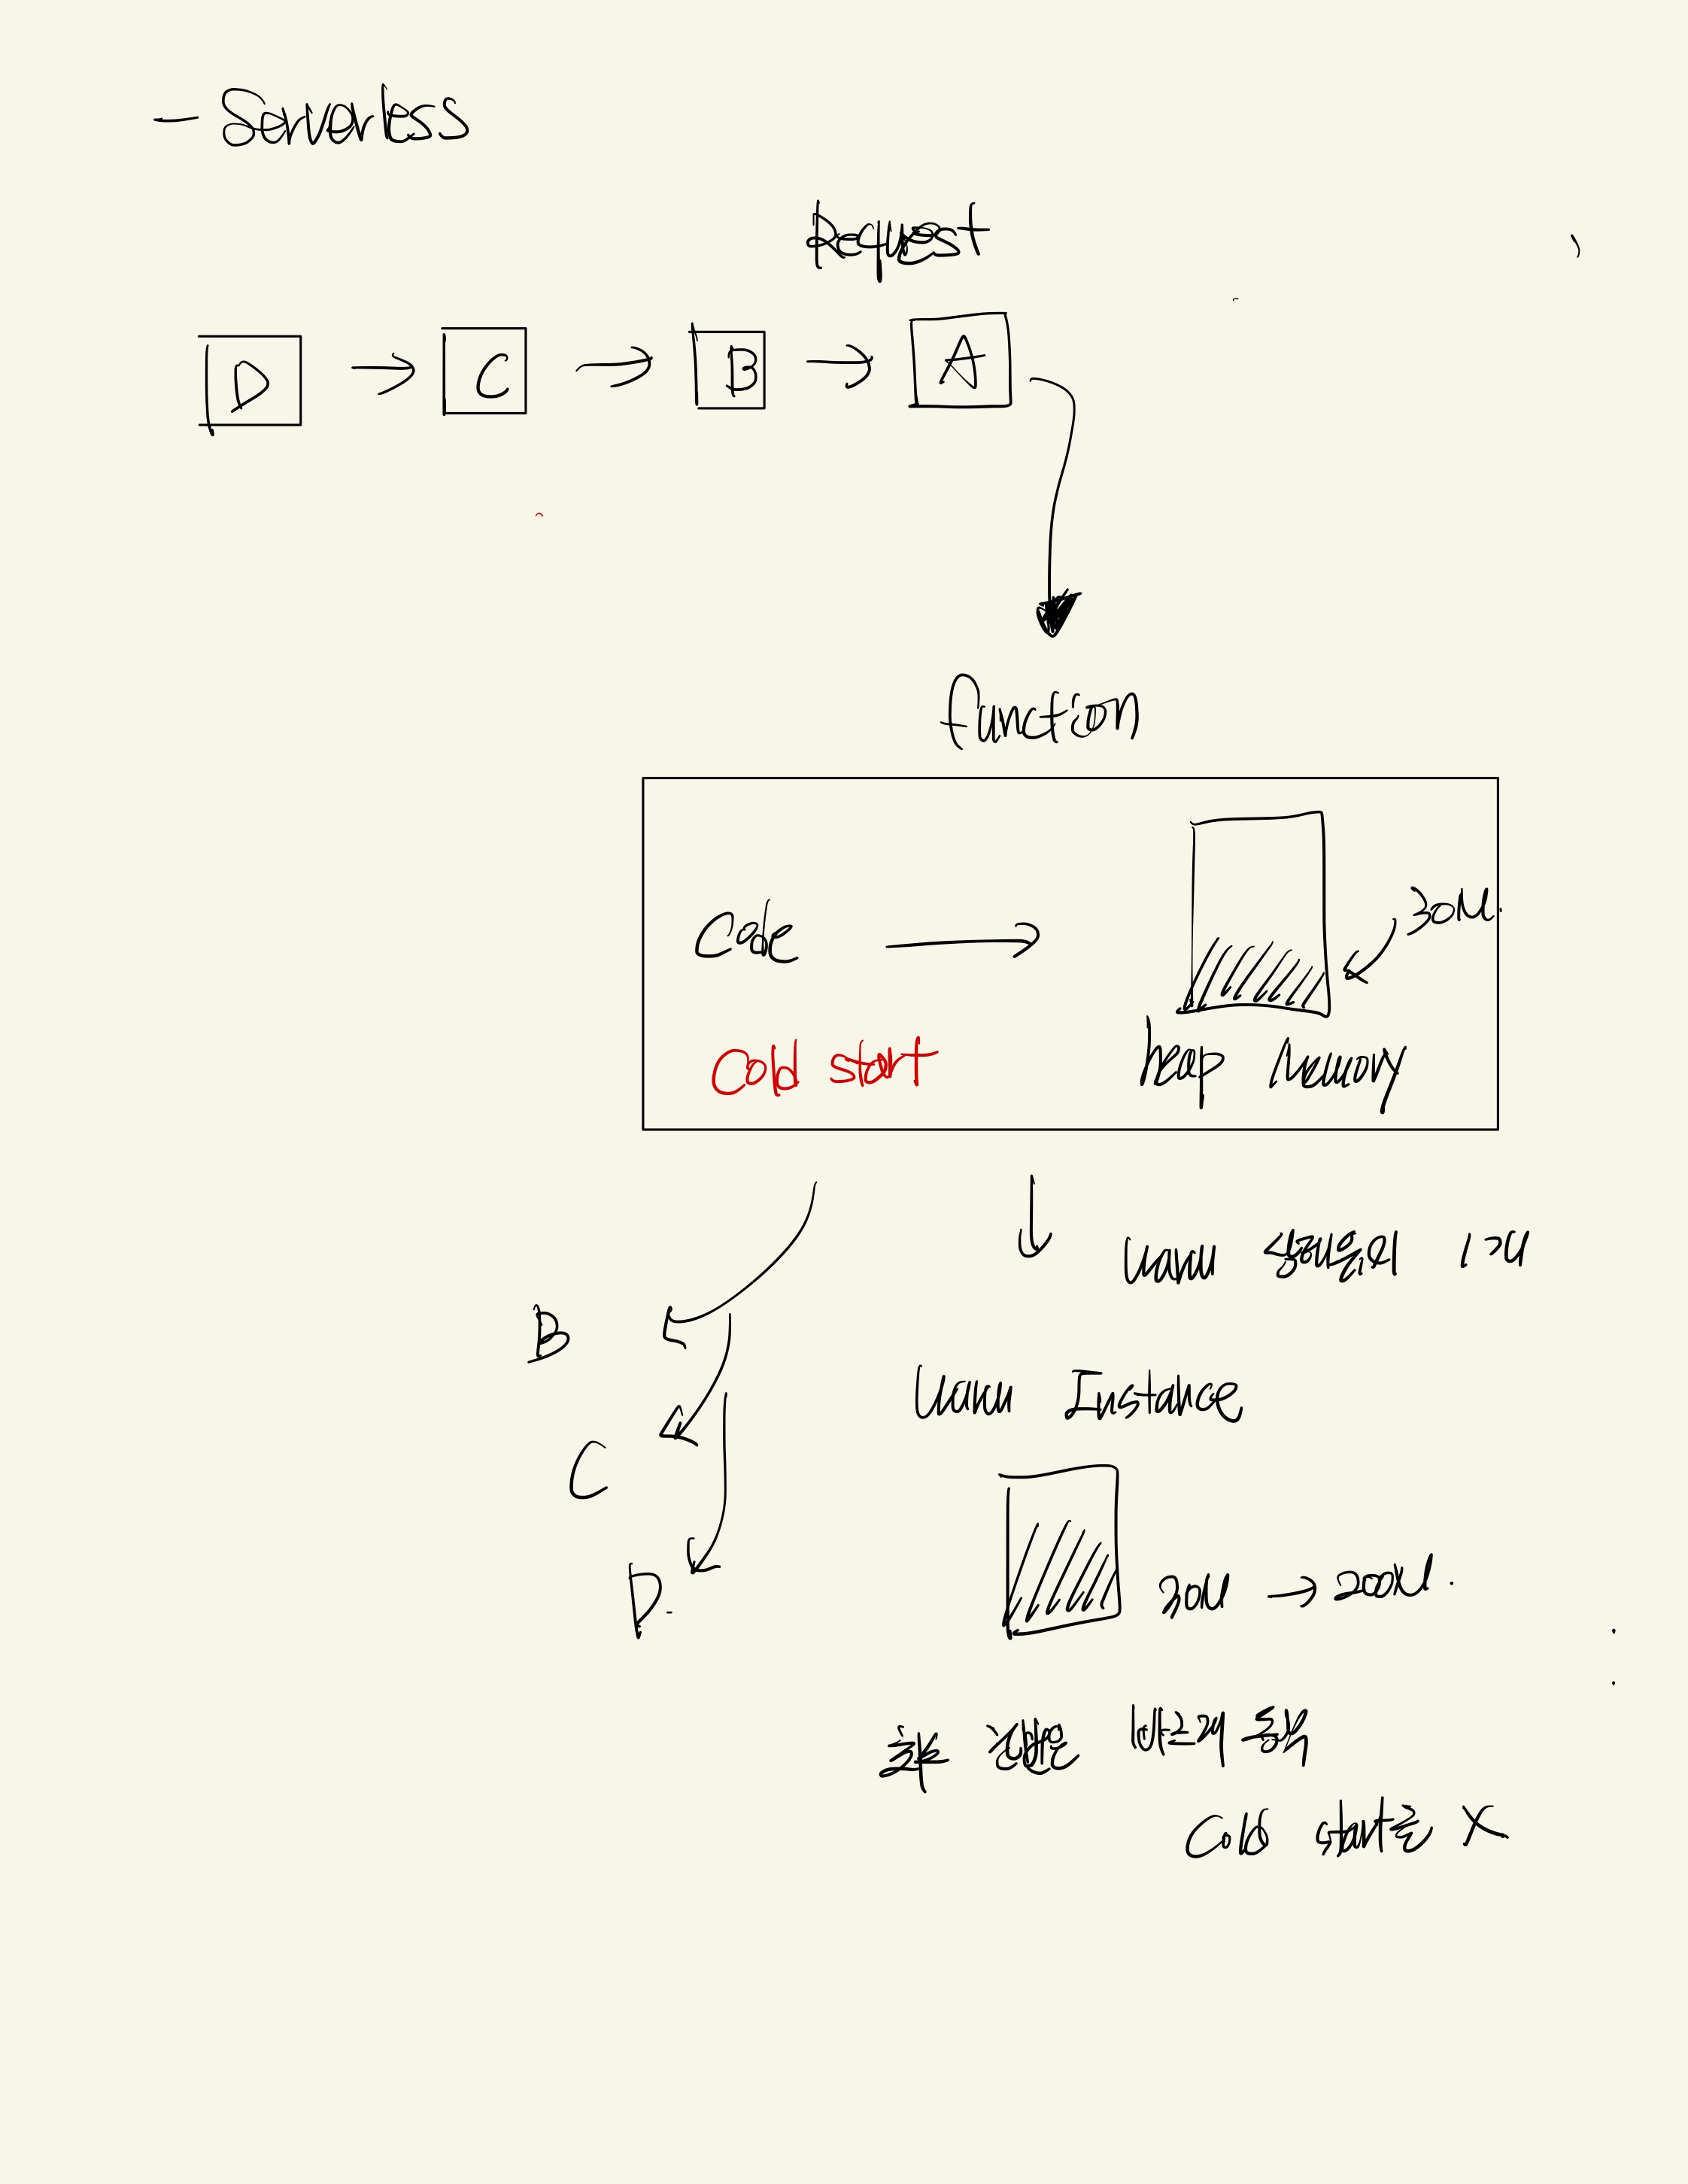 — Serverless
Request
D → C → B → A
function
Code →
30M.
Cold start
heap Memory
Warm 상태를의 1개
B
Warm Instance
C
30M → 200M.
D.
호출 빠르게 동작
Cold start는 X